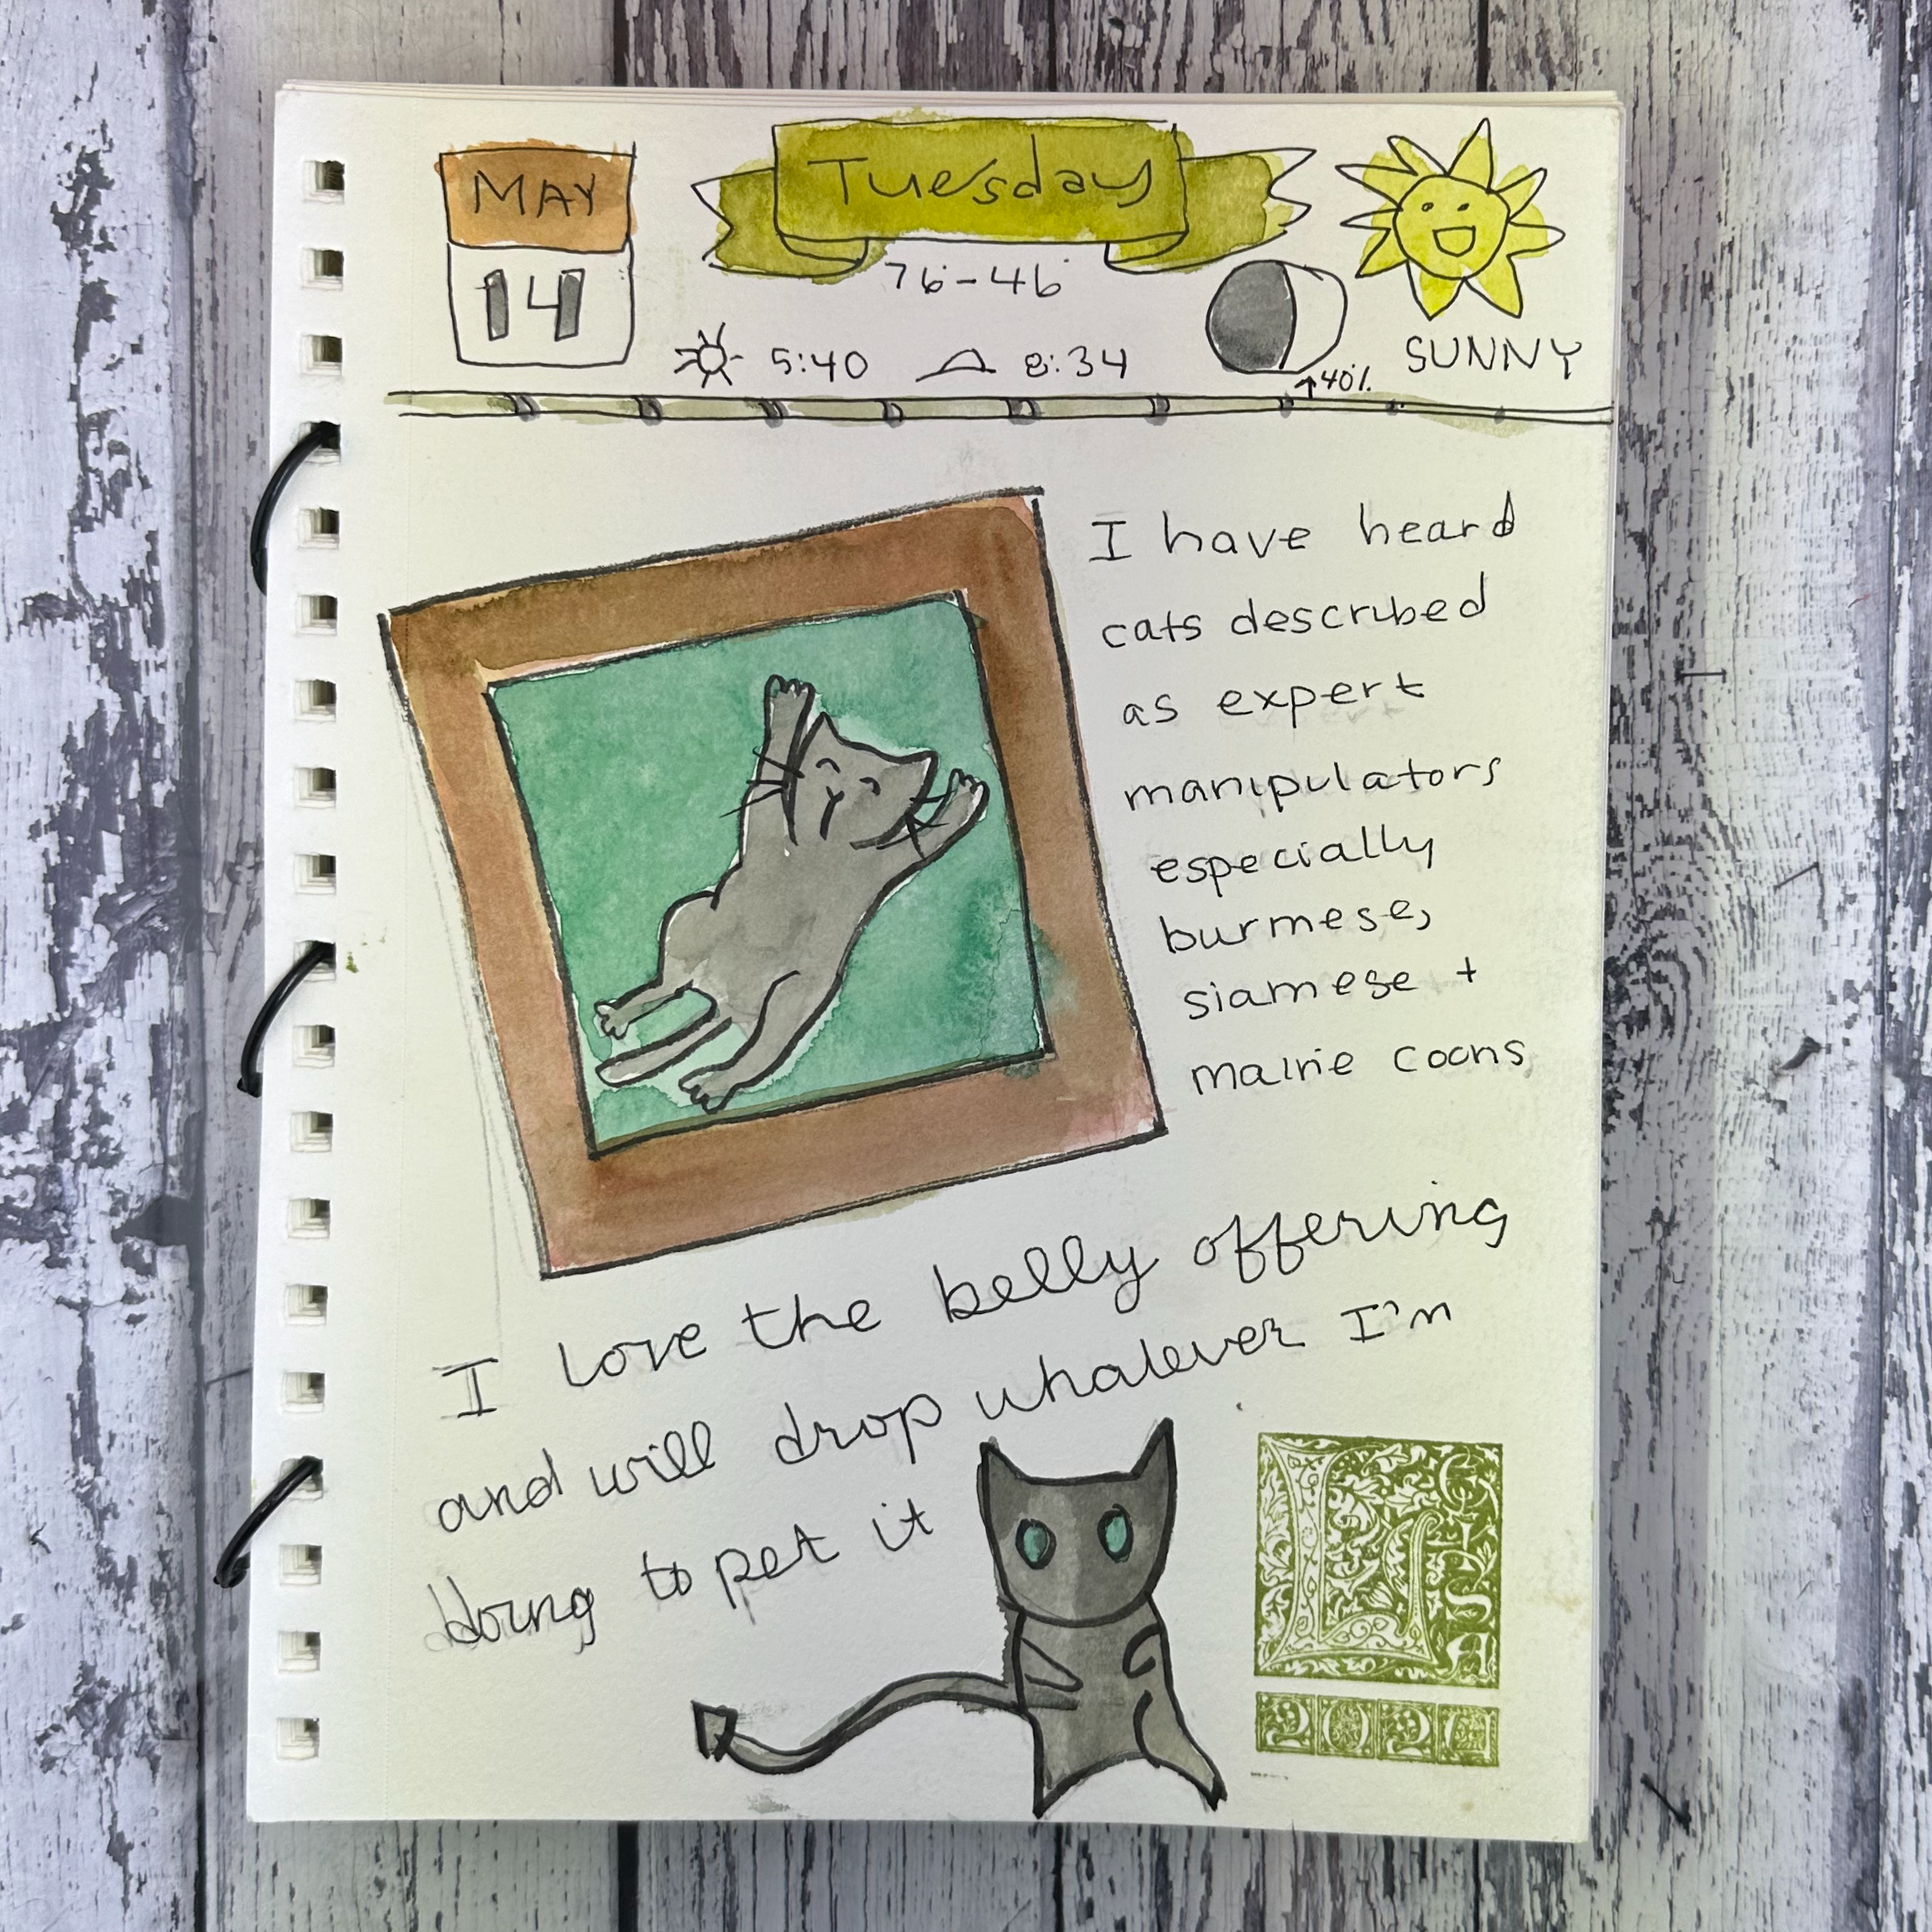 MAY
14
Tuesday
76-46
5:40 8:34
↑40%
SUNNY
I have heard
cats described
as expert
manipulators
especially
burmese,
siamese +
maine coons
I love the belly offering
and will drop whatever I'm
doing to pet it
LISA
2024